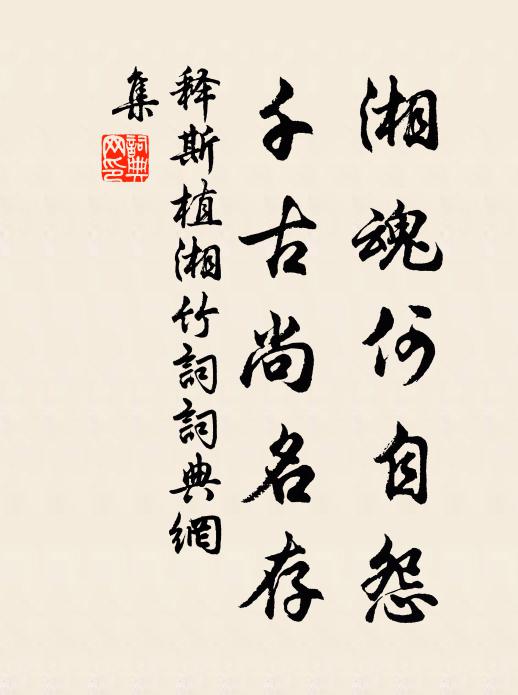 湘魂何自怨
千古尚名存
释斯植湘竹詞詞典網
集
詞典網印